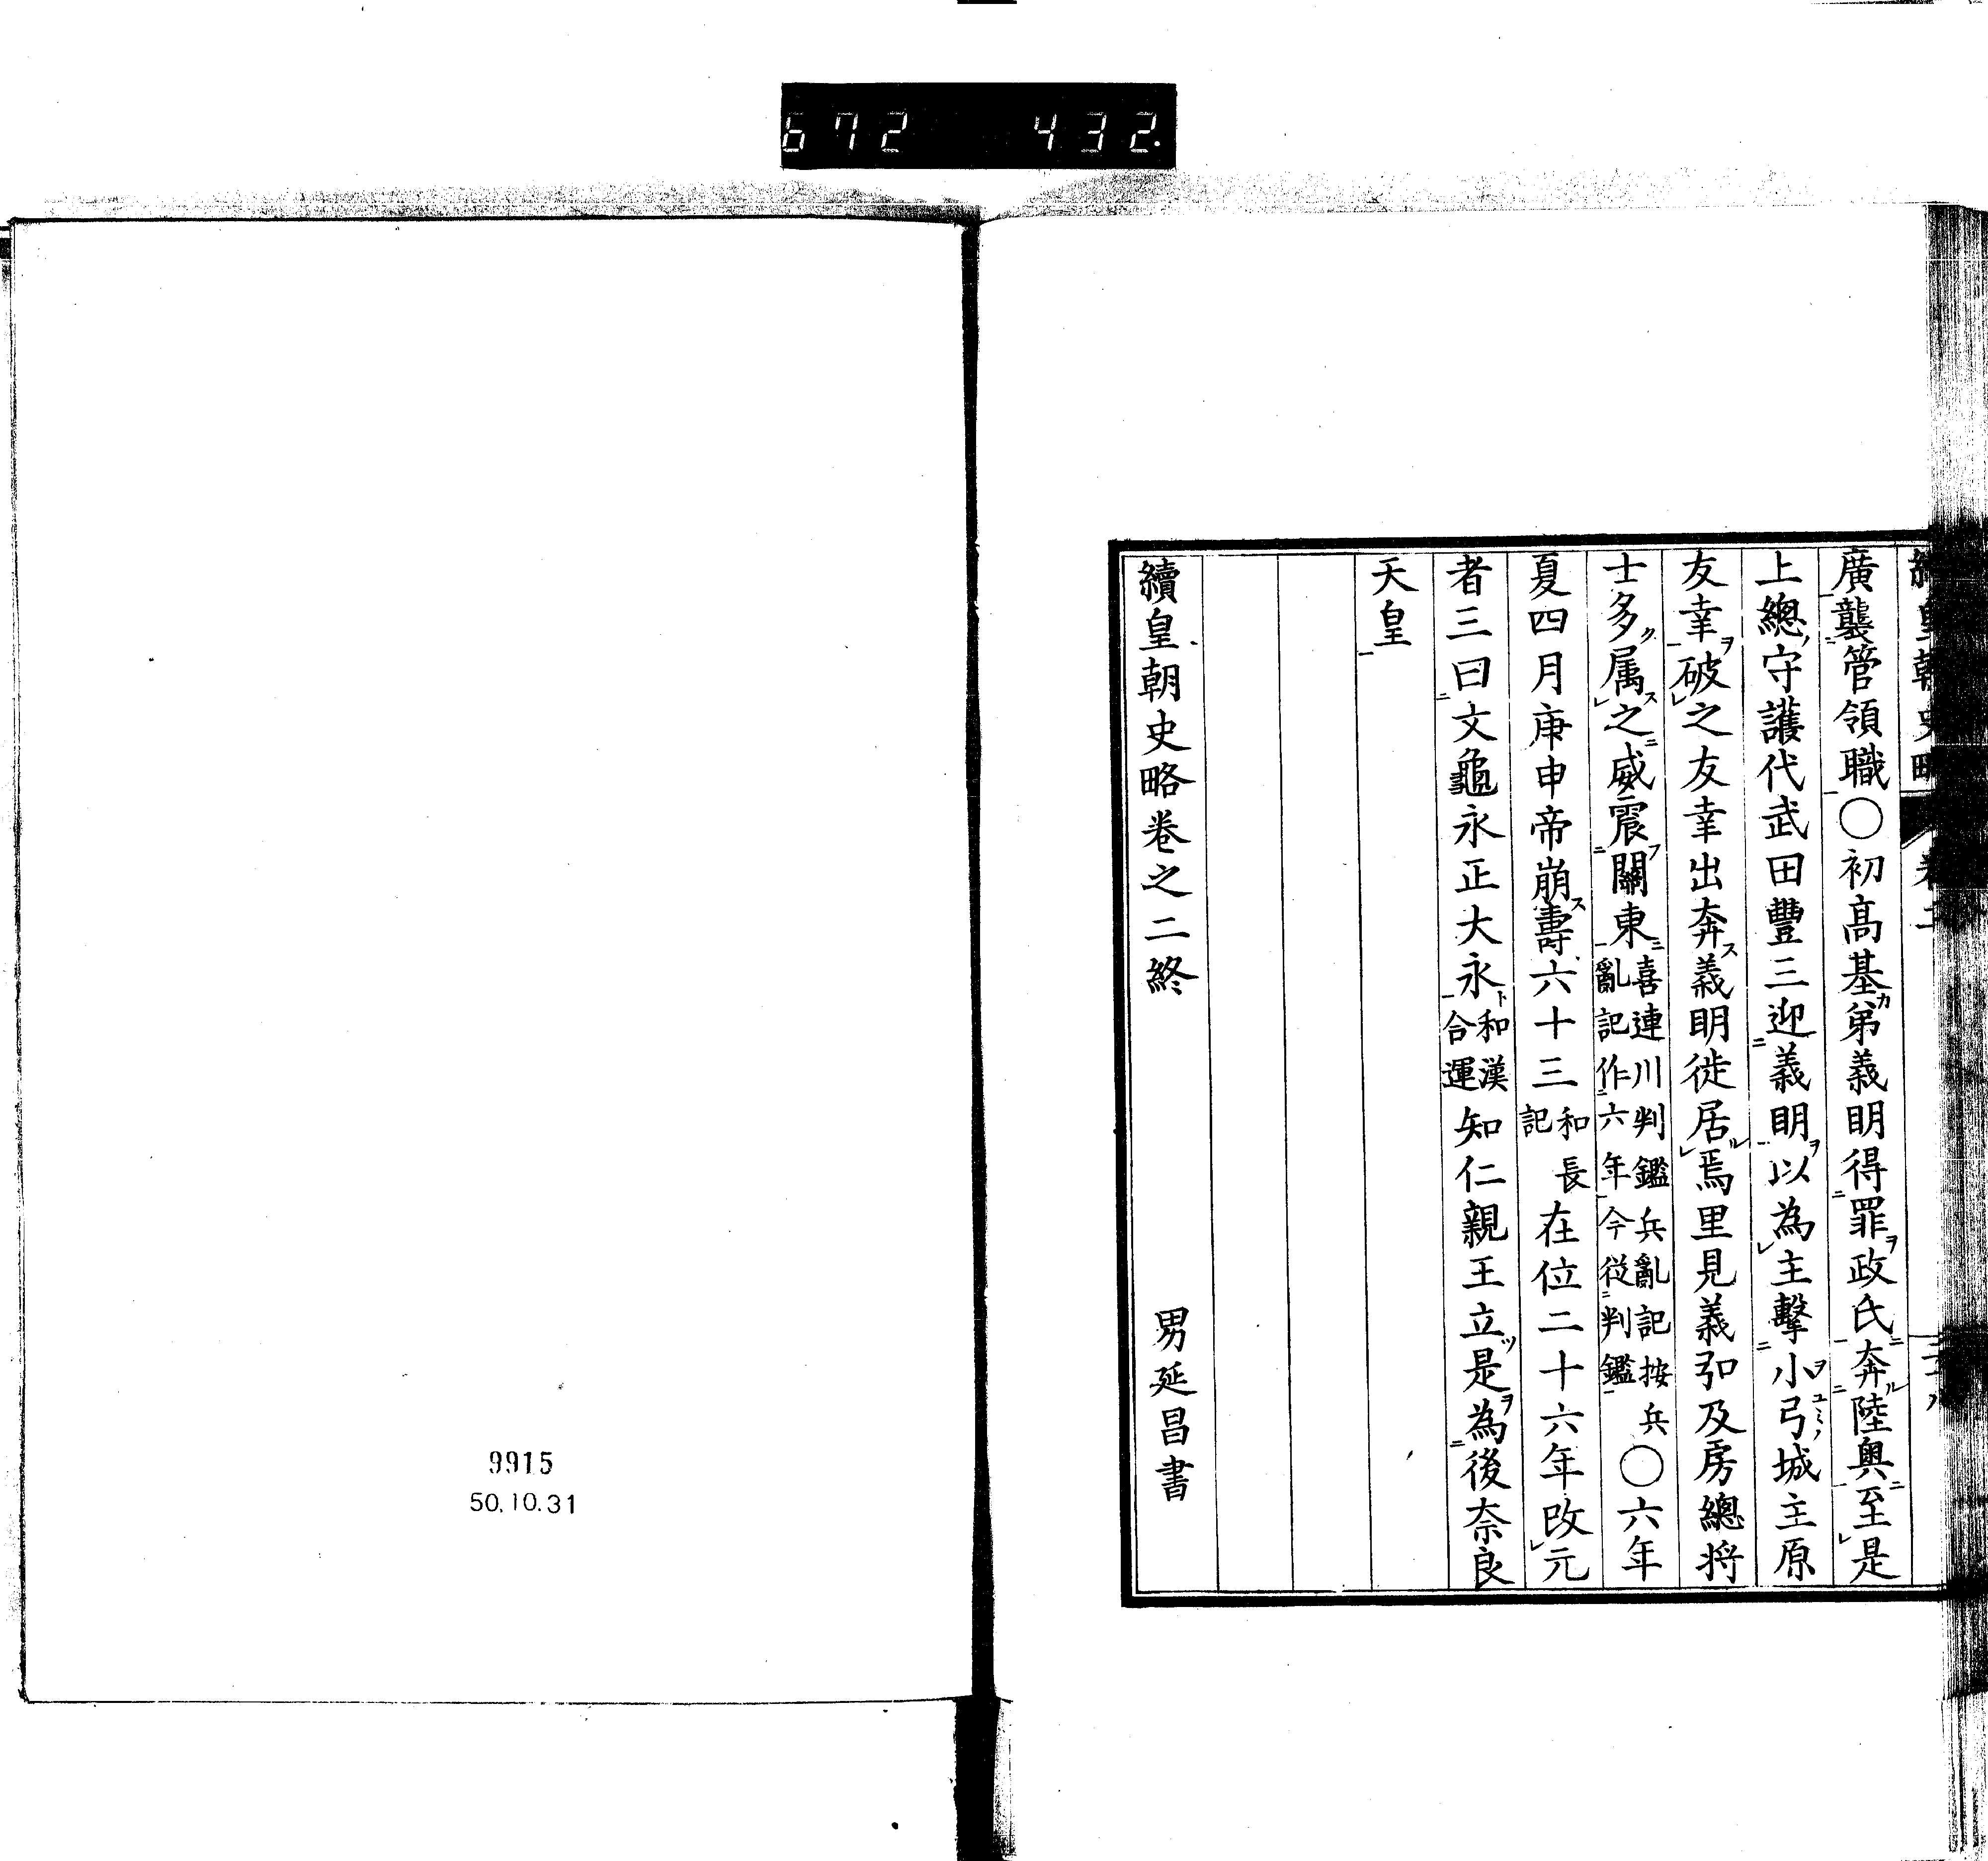 672 432.
續皇朝史略 卷二
廣襲管領職○初高基弟義明得罪政氏奔陸奧至是
上總守護代武田豐三迎義明以為主擊小弓城主原
友幸破之友幸出奔義明徙居焉里見義弘及房總將
士多属之威震關東喜連川判鑑兵亂記按兵亂記作六年今從判鑑○六年
夏四月庚申帝崩壽六十三和長記在位二十六年改元
者三曰文龜永正大永和漢合運知仁親王立是為後奈良
天皇
續皇朝史略卷之二終 男延昌書
9915
50.10.31